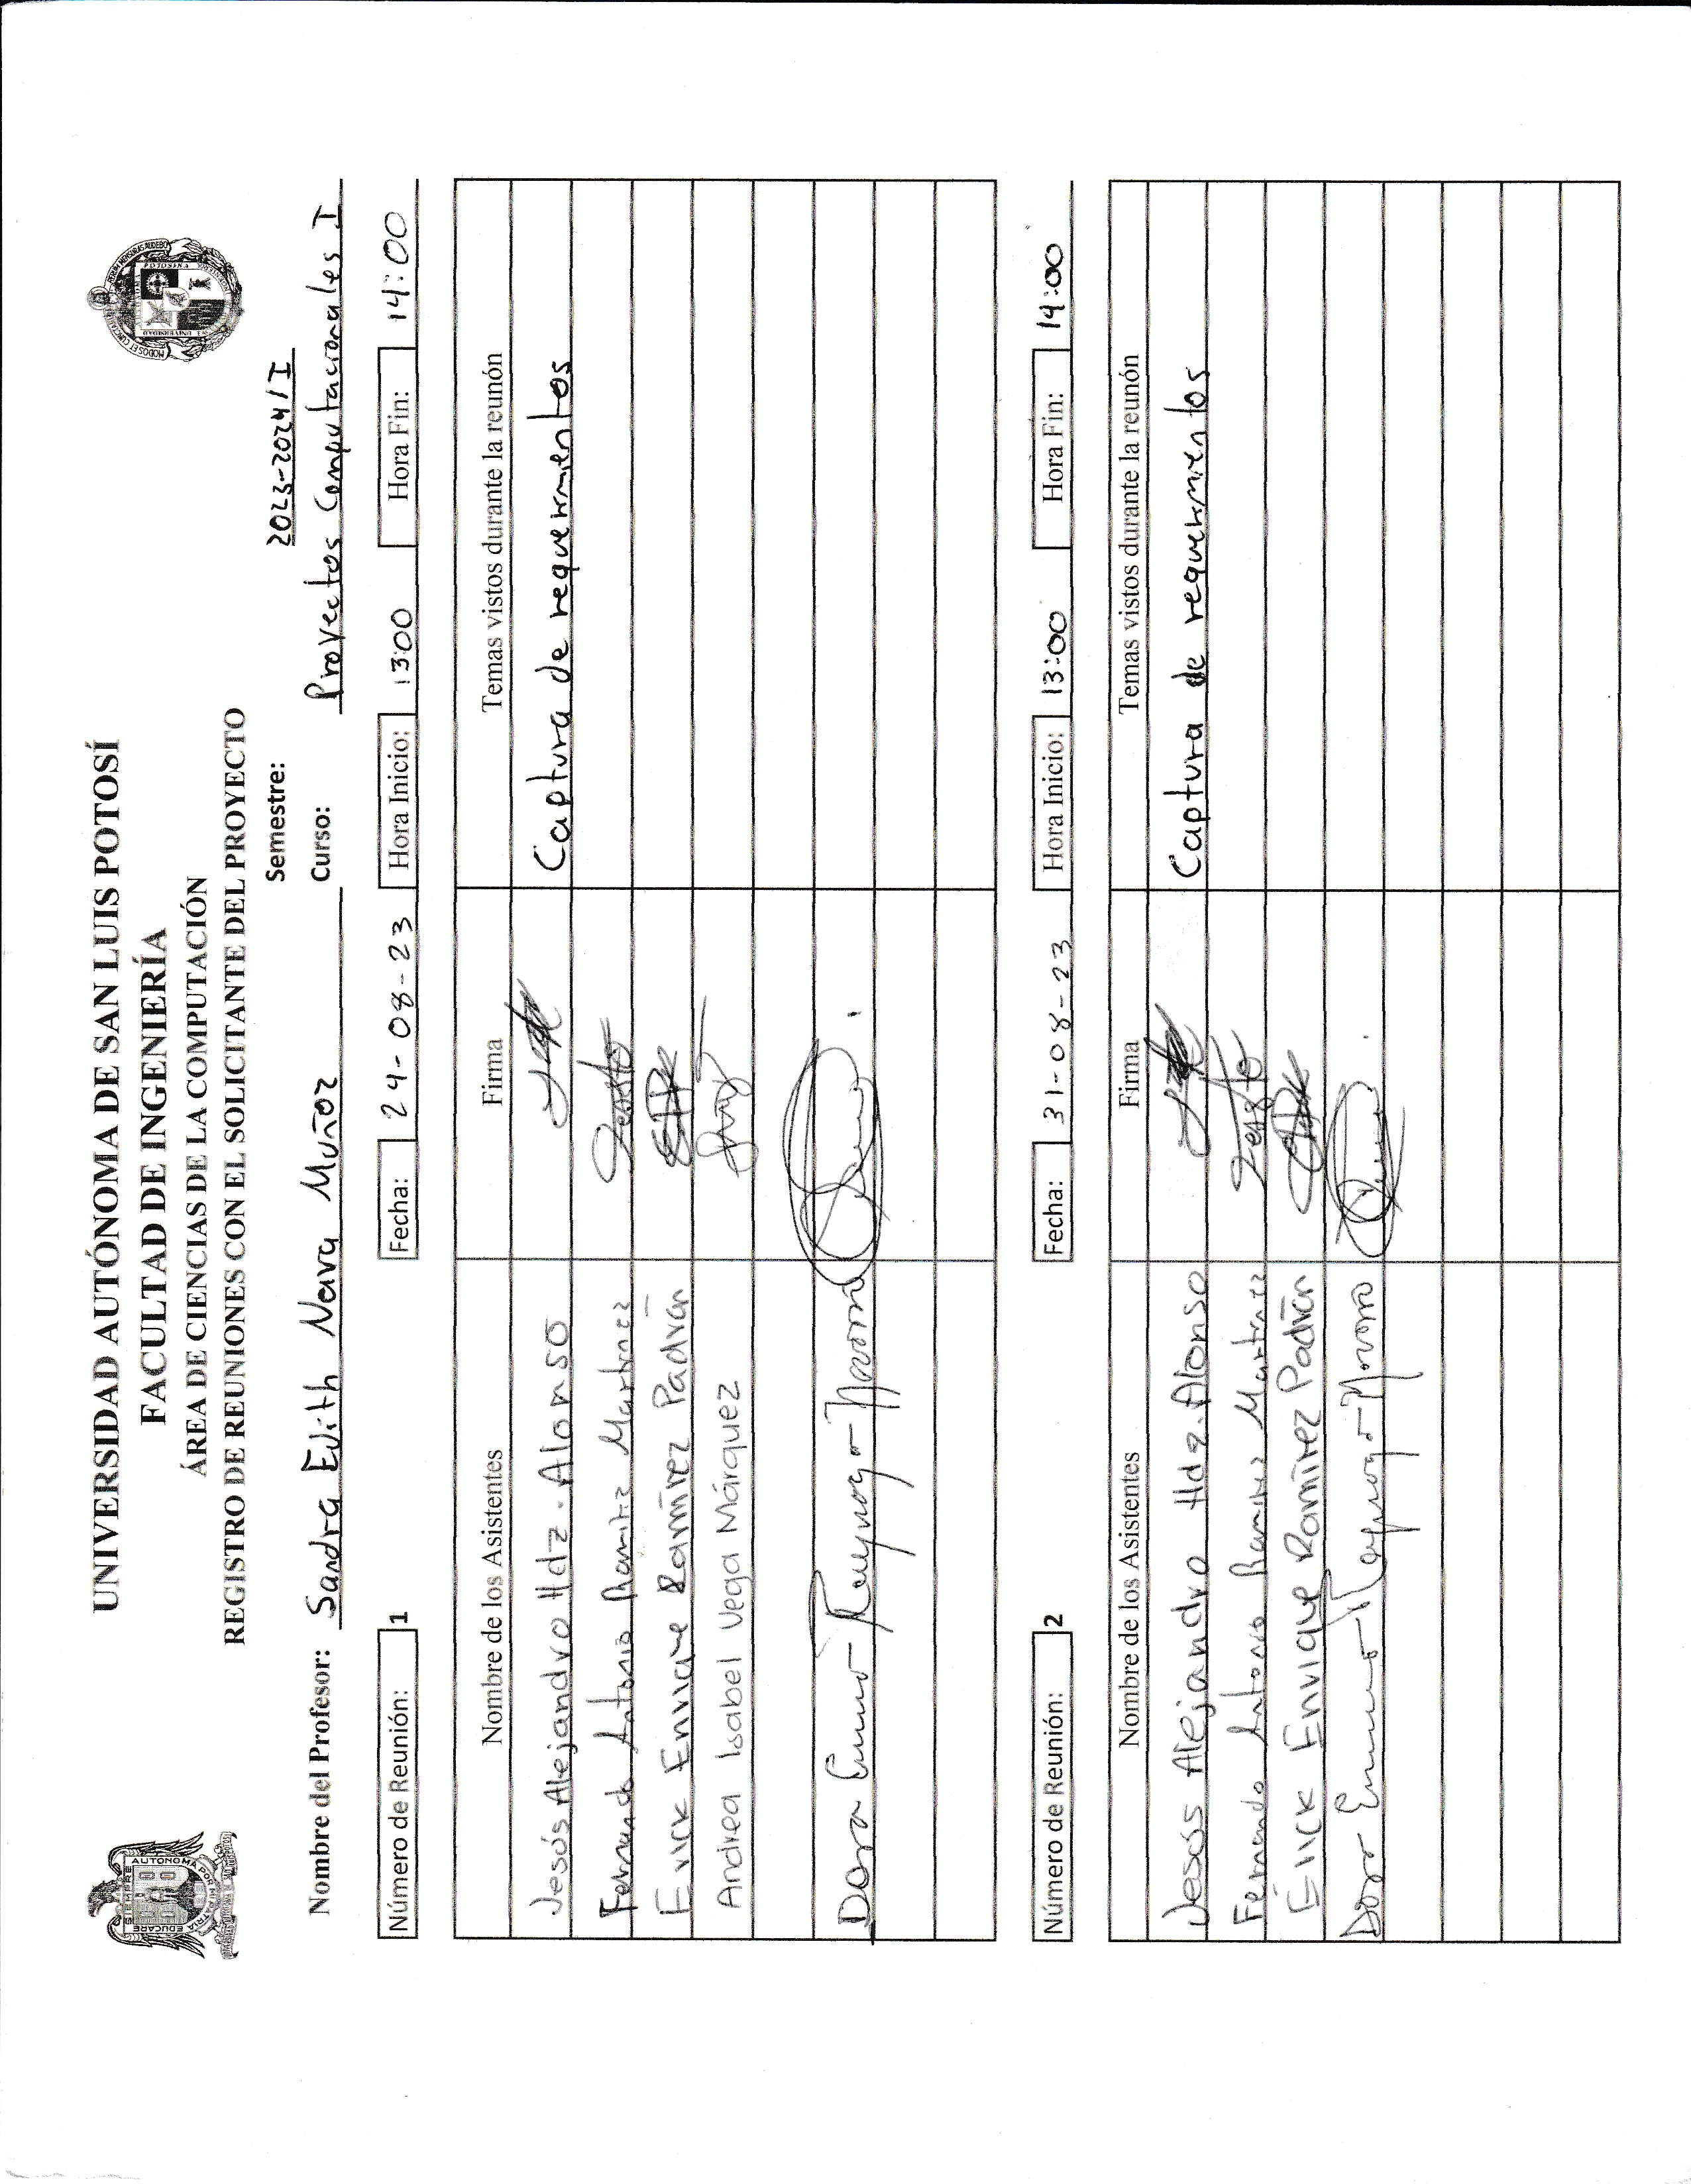 UNIVERSIDAD AUTÓNOMA DE SAN LUIS POTOSÍ
FACULTAD DE INGENIERÍA
ÁREA DE CIENCIAS DE LA COMPUTACIÓN
REGISTRO DE REUNIONES CON EL SOLICITANTE DEL PROYECTO
Semestre: 2023-2024/I
Nombre del Profesor: Sandra Edith Nava Muñoz Curso: Proyectos Computacionales I
Número de Reunión: 1 Fecha: 24-08-23 Hora Inicio: 13:00 Hora Fin: 14:00
Nombre de los Asistentes Firma Temas vistos durante la reunón
Jesús Alejandro Hdz. Alonso Captura de requerimientos
Fernando Antonio Ramirez Martinez
Erick Enrique Ramírez Padrón
Andrea Isabel Vega Márquez
Dora
Número de Reunión: 2 Fecha: 31-08-23 Hora Inicio: 13:00 Hora Fin: 14:00
Nombre de los Asistentes Firma Temas vistos durante la reunón
Jesús Alejandro Hdz. Alonso Captura de requerimientos
Fernando Antonio Ramirez Martinez
Erick Enrique Ramírez Padrón
Dora